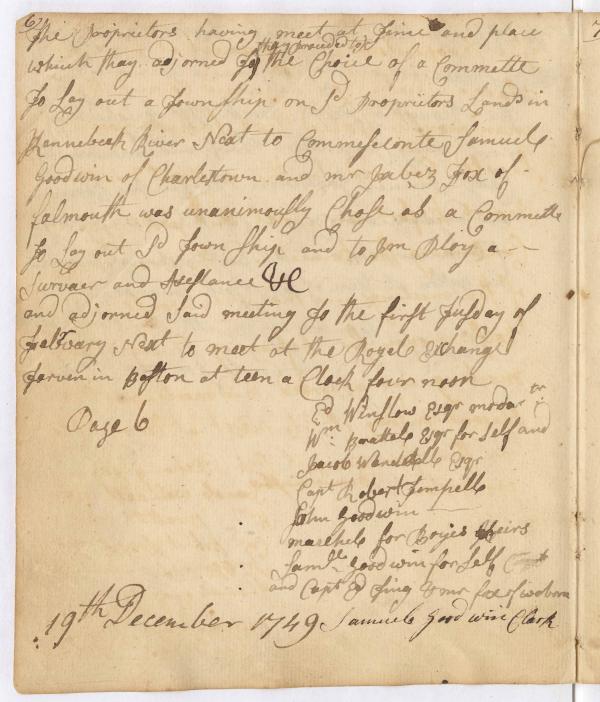 6
The Proprietors having meet at Time and place
thay proceded to
which thay adjorned To the Choice of a Commette
To Lay out a Township on Sd Proprietors Lands in
Kennebeck River Next to Commeseconte Samuel
Goodwin of Charlestown and mr Jabez Fox of
falmouth was unanimously Chose as a Commette
To Lay out Sd Township and to Im Ploy a
Survaer and Asestance &c
and adjorned Said meeting To the first Tusday of
Febrvary Next to meet at the Royel Exchange
Tarven in Boston at teen a Clock four noon
Page 6
Ed Winslow Esqr modar tr
Wm Brattele Esqr for Self and
Jacob Wendell Esqr
Capt Robert Tempell
John Goodwin
for Heirs
Samll Goodwin for Self
and Capt & mr fox of woborn
19th December 1749 Samuel Goodwin Clark
7